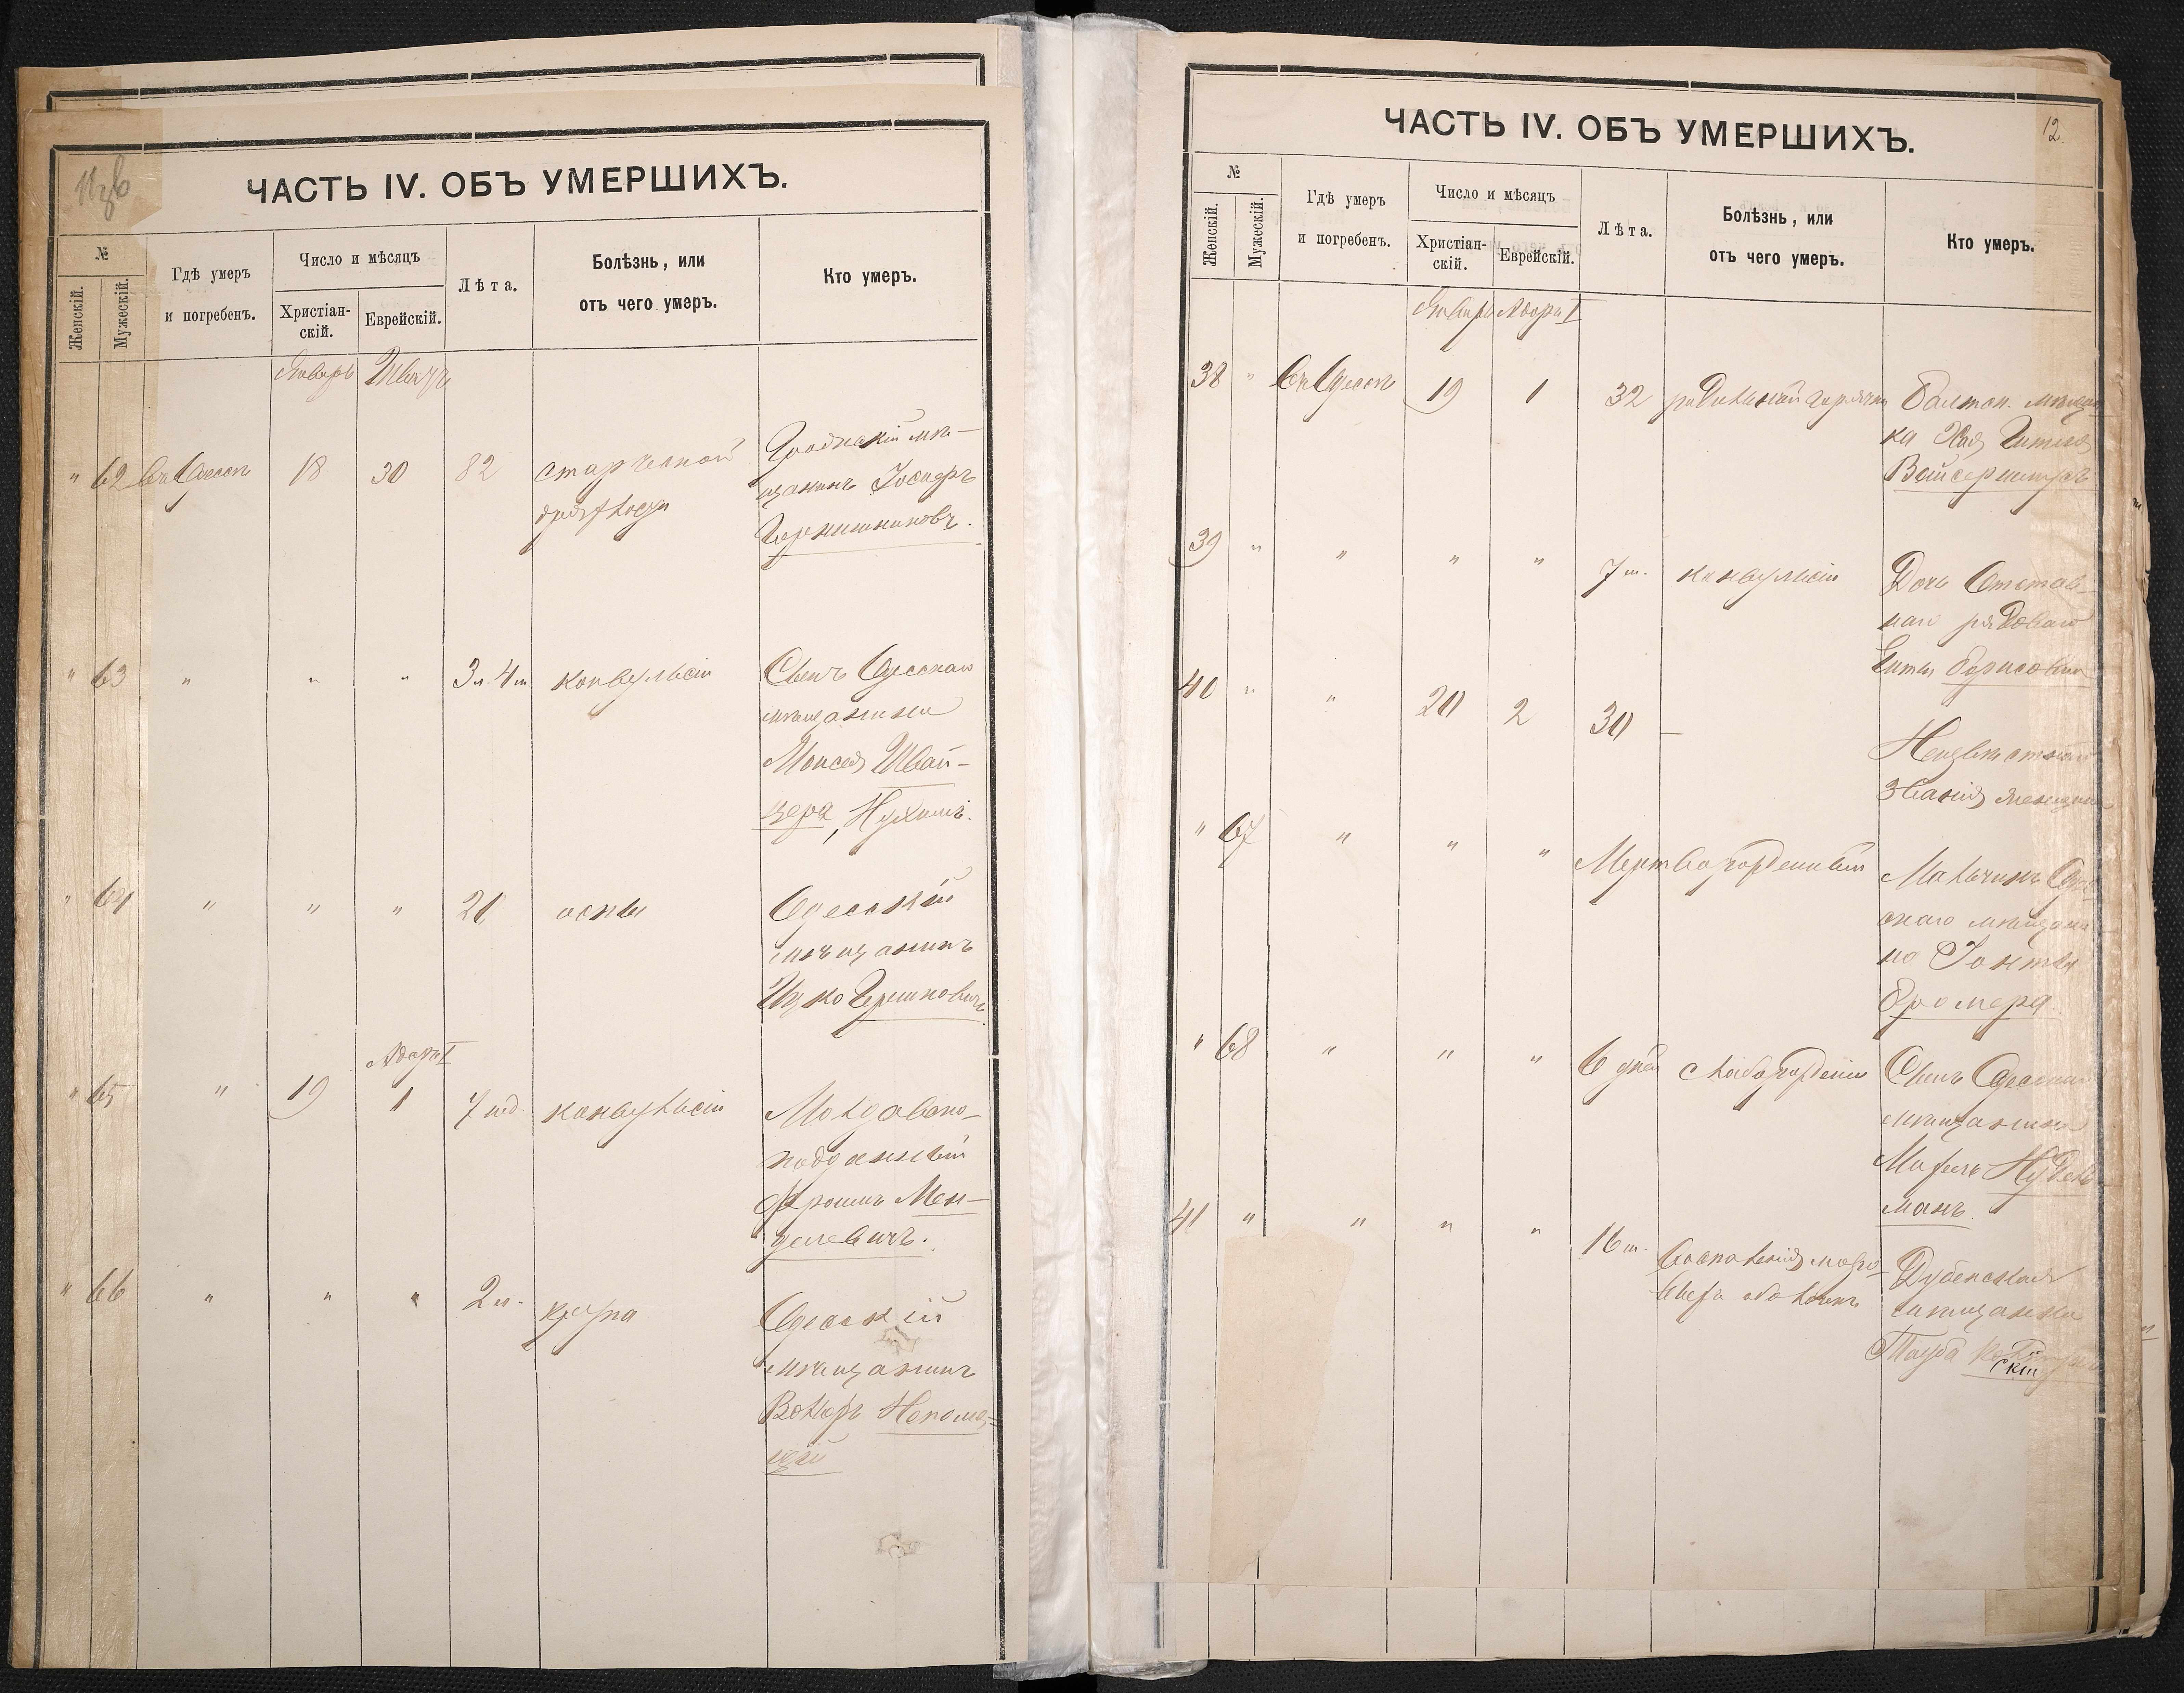 ЧАСТЬ IV. ОБЪ УМЕРШИХЪ.
№
Женскій.
Мужескій.
Гдѣ умеръ
и погребенъ.
Число и мѣсяцъ
Христіан-
скій.
Еврейскій.
Лѣта.
Болѣзнь, или
отъ чего умеръ.
Кто умеръ.
Январь Шватъ
" 62 Въ Одессѣ 18 30 82 старческой
Гродискій мѣ-
щанинъ Іосифъ
" 63 " " " 3 л. 4 м. конвульсіи Сынъ Одесскаго
мѣщанина
Моисея Швай-
цера, Нухимъ.
" 64 " " " 21 оспы Одесскій
мѣщанинъ
Ицко Гершковичъ
Адаръ I
" 65 " 19 1 7 нед. конвульсіи Молдавско-
подданный
Фроимъ Мен-
делевичъ.
" 66 " " " 2 л. крупа Одесскій
мѣщанинъ
Вольфъ Непомня-
щій
ЧАСТЬ IV. ОБЪ УМЕРШИХЪ.
12.
№
Женскій.
Мужескій.
Гдѣ умеръ
и погребенъ.
Число и мѣсяцъ
Христіан-
скій.
Еврейскій.
Лѣта.
Болѣзнь, или
отъ чего умеръ.
Кто умеръ.
Январь Адаръ I
38 " Въ Одессѣ 19 1 32 родильной горячки Балтск. мѣщан-
ка Хая Гитля
39 " " " " 7 м. конвульсіи Дочь Отстав-
наго рядоваго
Гитля Борисовна
40 " " 20 2 30 — Неизвѣстной
званія женщина
" 67 " " " Мертворожденный Мальчикъ Одес-
скаго мѣщани-
на
Бромера
" 68 " " " 6 дней слаборожденія Сынъ Одесскаго
мѣщанина
Нудель-
манъ.
41 " " " " 16 м. Воспаленія мозго-
выхъ оболочекъ Дубенская
мѣщанка
Тауба
ск